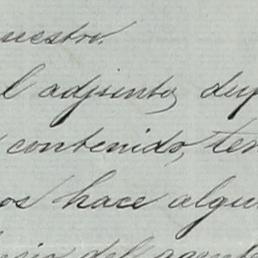 uestro.
l adjunto, dup
contenido, ten
os hace algu
del agente